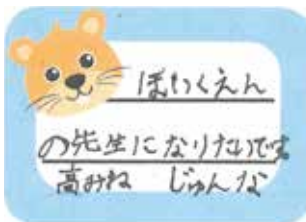 ほいくえん
の先生になりたいです
高みね じゅんな